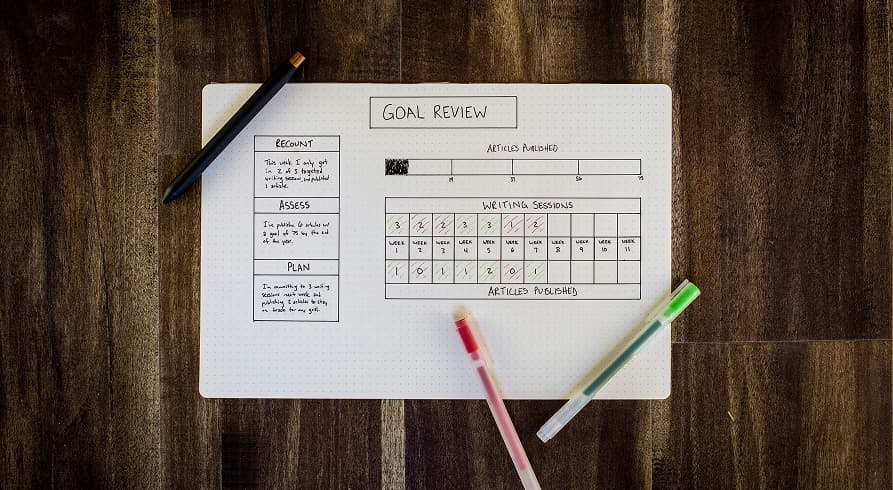 GOAL REVIEW
RECOUNT
This week I only got
in 2 of 3 targeted
writing sessions, and published
1 article.
ASSESS
I've published 6 articles w/
a goal of 75 by the end
of the year.
PLAN
I'm committing to 3 writing
sessions next week and
publishing 2 articles to stay
on track for my goal.
ARTICLES PUBLISHED
19 37 56 75
WRITING SESSIONS
3 2 2 3 3 1 2
WEEK WEEK WEEK WEEK WEEK WEEK WEEK WEEK WEEK WEEK WEEK
1 2 3 4 5 6 7 8 9 10 11
1 0 1 1 2 0 1
ARTICLES PUBLISHED